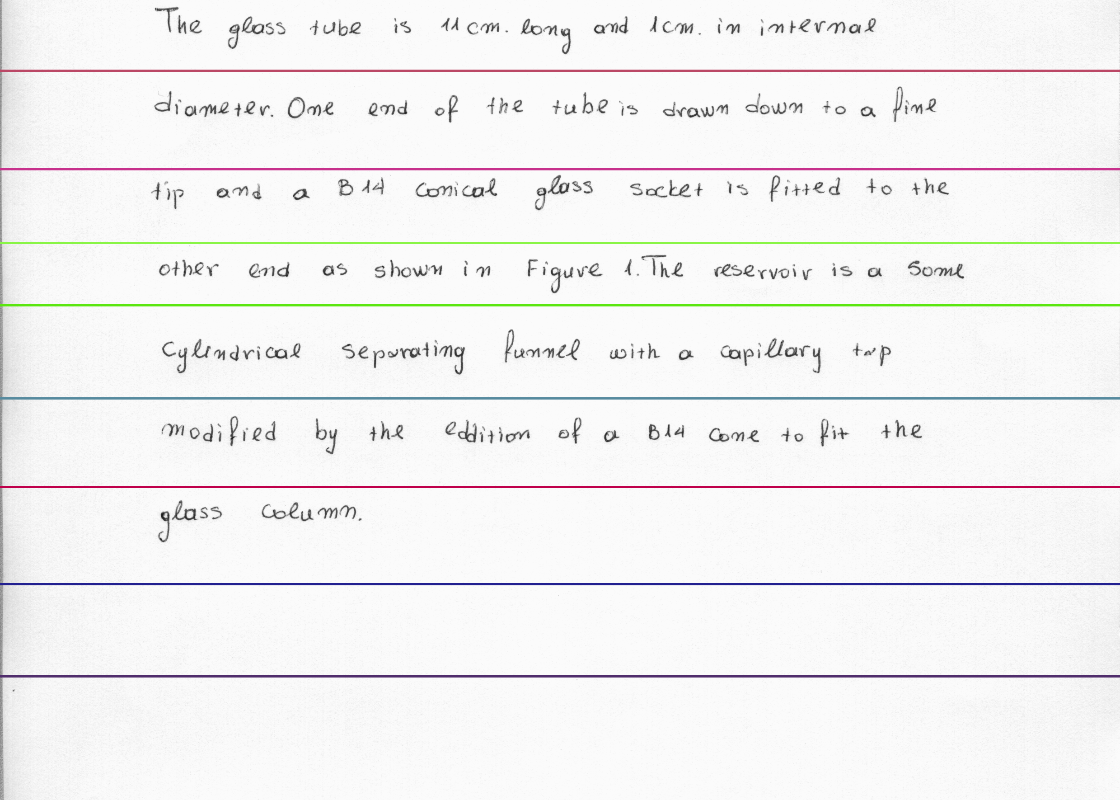 The glass tube is 11 cm. long and 1 cm. in internal
diameter. One end of the tube is drawn down to a fine
tip and a B 14 conical glass socket is fitted to the
other end as shown in Figure 1. The reservoir is a some
Cylindrical separating funnel with a capillary tap
modified by the eddition of a B14 cone to fit the
glass column.